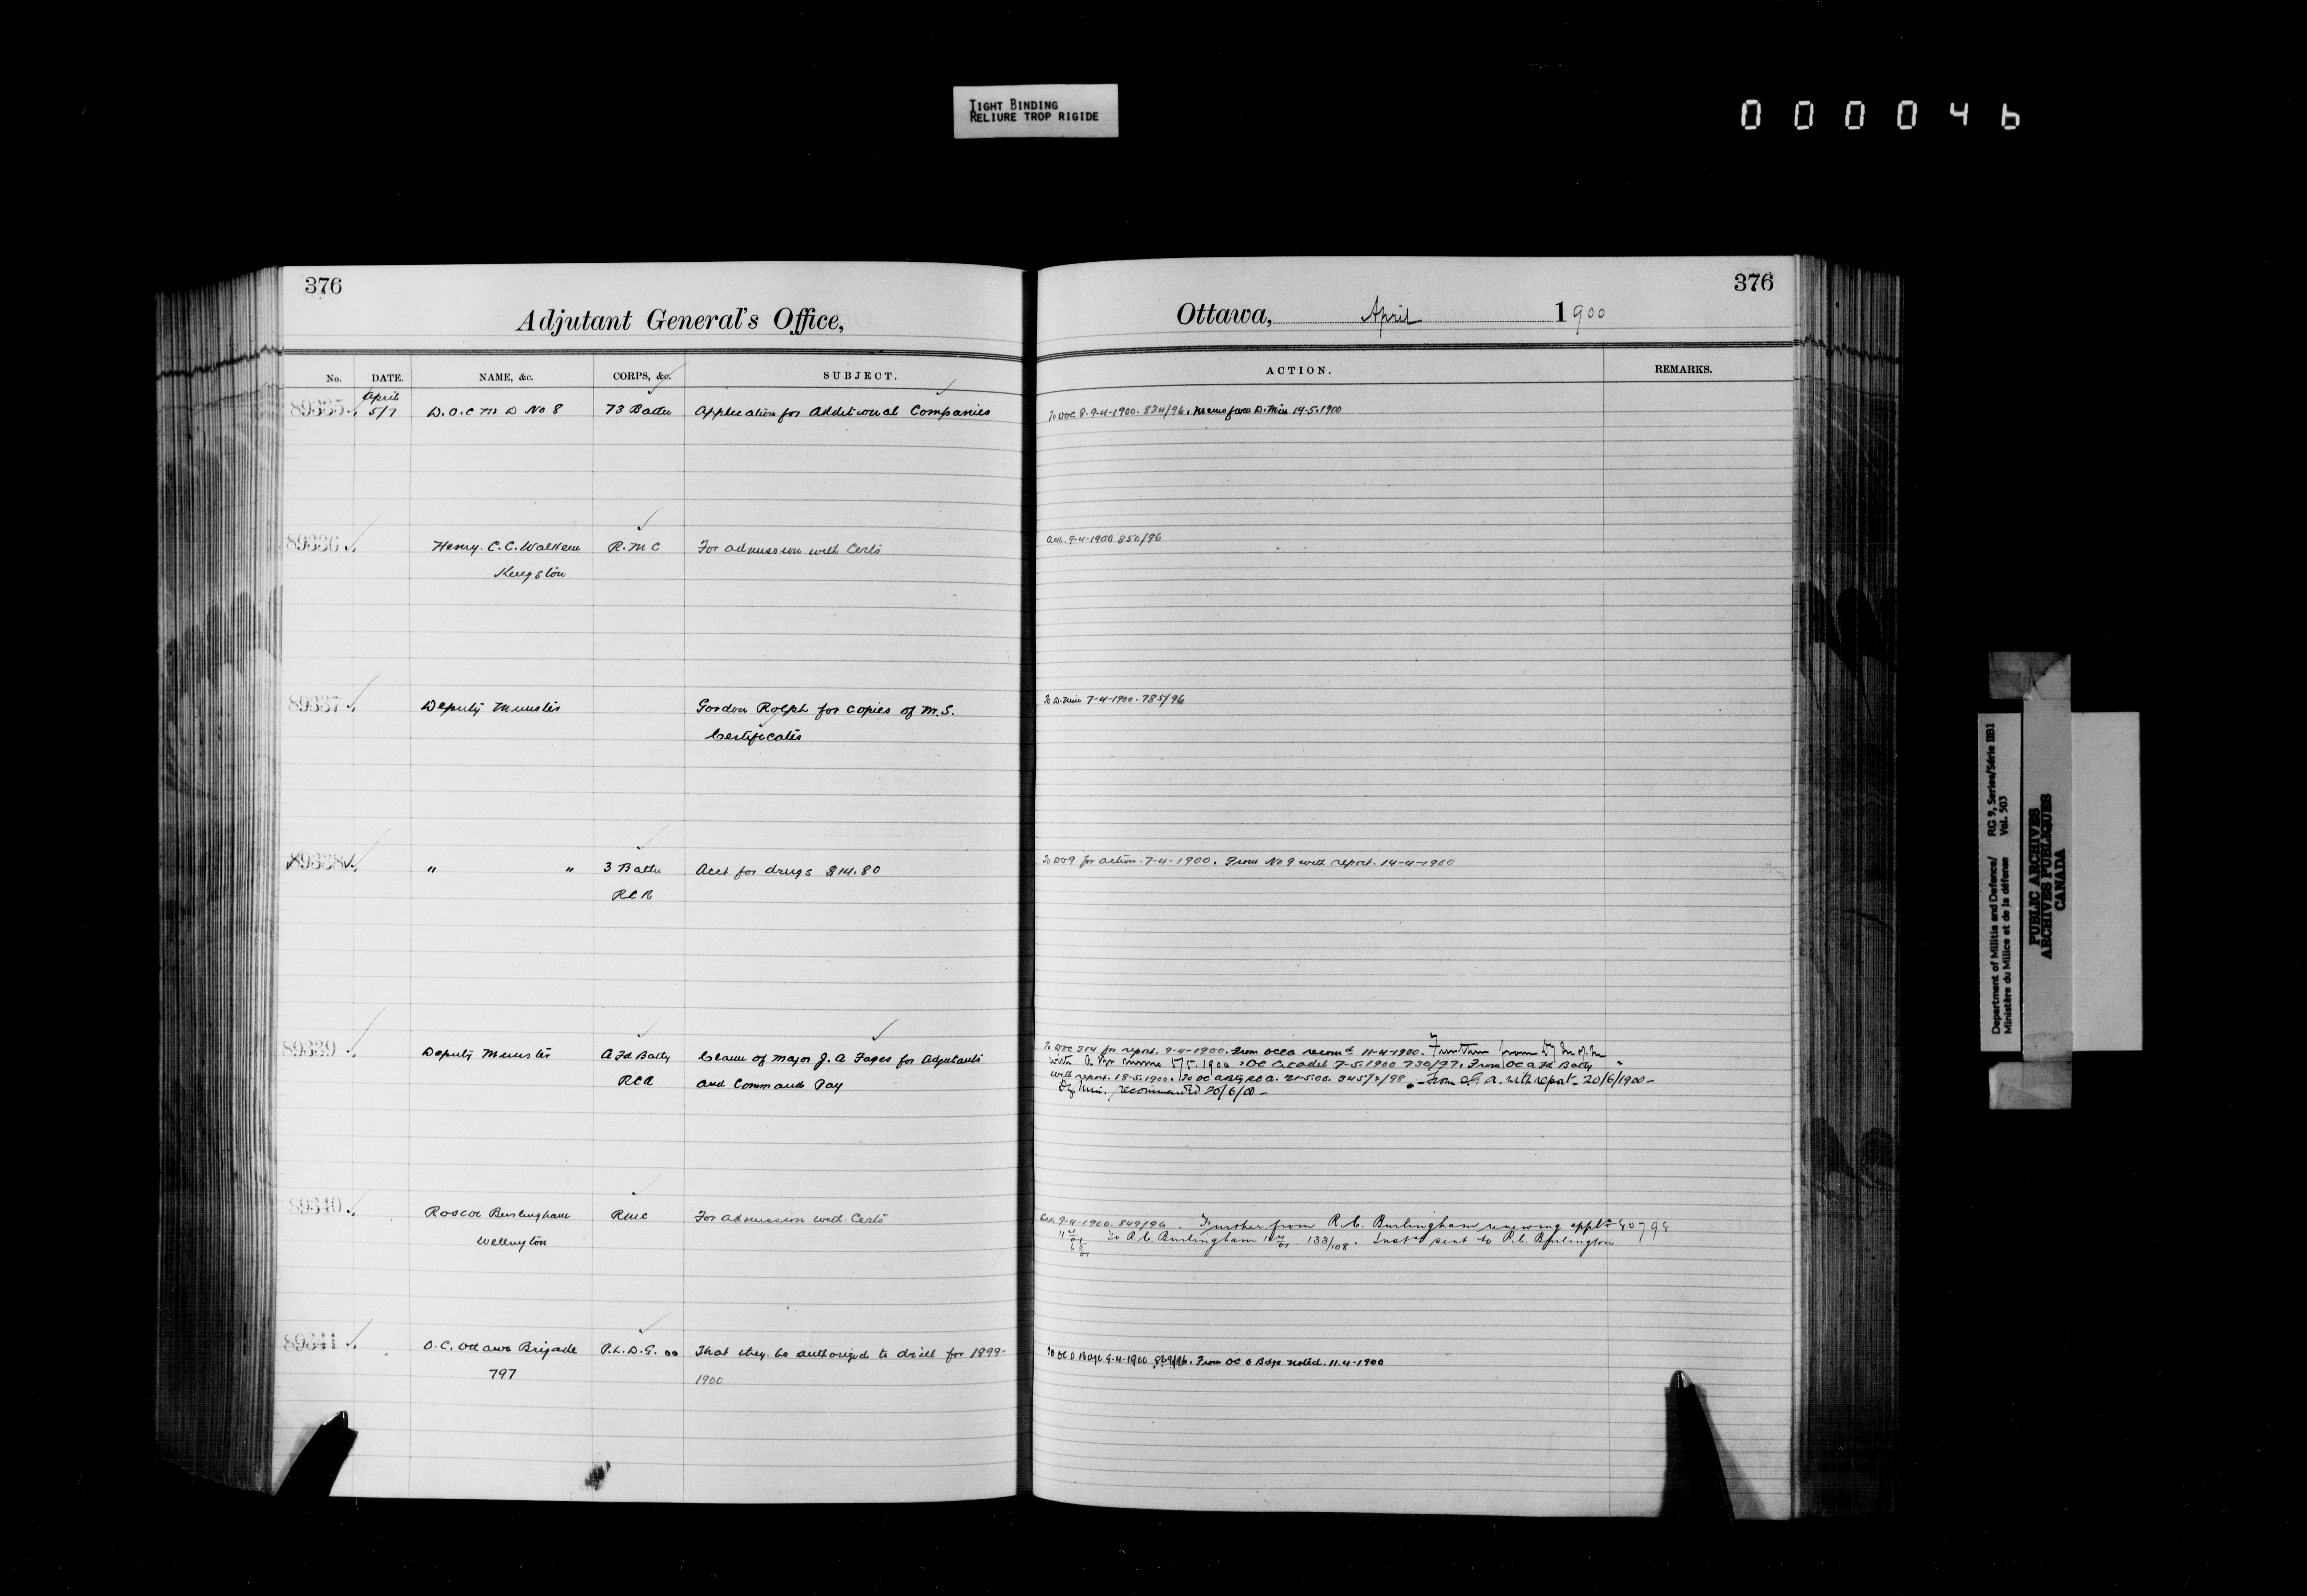 TIGHT BINDING
RELIURE TROP RIGIDE
000046
376
Adjutant General's Office,
No. DATE. NAME, &c. CORPS, &c. SUBJECT.
April
89335 5/7 D.O.C M D No 8 73 Battn Application for Additional Companies
89336 Henry. C. C. Walkem R.M C For admission with Certs
Kingston
89337 Deputy Minister Gordon Rolph for copies of M.S.
Certificates
89338 " " 3 Battn Acct for drugs $14.80
RCR
89339 Deputy Minister A Fd Batty Claim of Major J. A Fages for Adjutants
RCA and Command Pay
89340 Roscoe Burlingham RMC For admission with Certs
Wellington
89341 O.C. Ottawa Brigade P.L.D.G. That they be authorized to drill for 1899-
797 1900
376
Ottawa, April 1900
ACTION. REMARKS.
To DOC 8. 9-4-1900. 824/96. Memo from D. Min 14-5-1900
Ack. 9-4-1900 850/96
To D. Min 7-4-1900. 785/96
To DO 9 for action. 7-4-1900. From No 9 with report. 14-4-1900
To DOC for report. 9-4-1900. From OCCA 11-4-1900. Further from
with 5/5.1900. OC Citadel 7-5.1900 730/97. From OC A Fd Batty
with report. 18-5.1900. To OC Arty RCA. 21-5.00. 345/ /98. From with report 20/6/1900-
Dy Min. recommended 20/6/00-
Ack. 9-4-1900. 849/96. Further from R. C. Burlingham renewing applt 80798
To R. C. Burlingham 133/108. sent to R. C. Burlington
To OC O Bdge 9-4-1900. From OC O Bdge noted. 11-4-1900
Department of Militia and Defence/ RG 9, Series/Série IIB1
Ministère du Milice et de la défense Vol. 503
PUBLIC ARCHIVES
ARCHIVES PUBLIQUES
CANADA